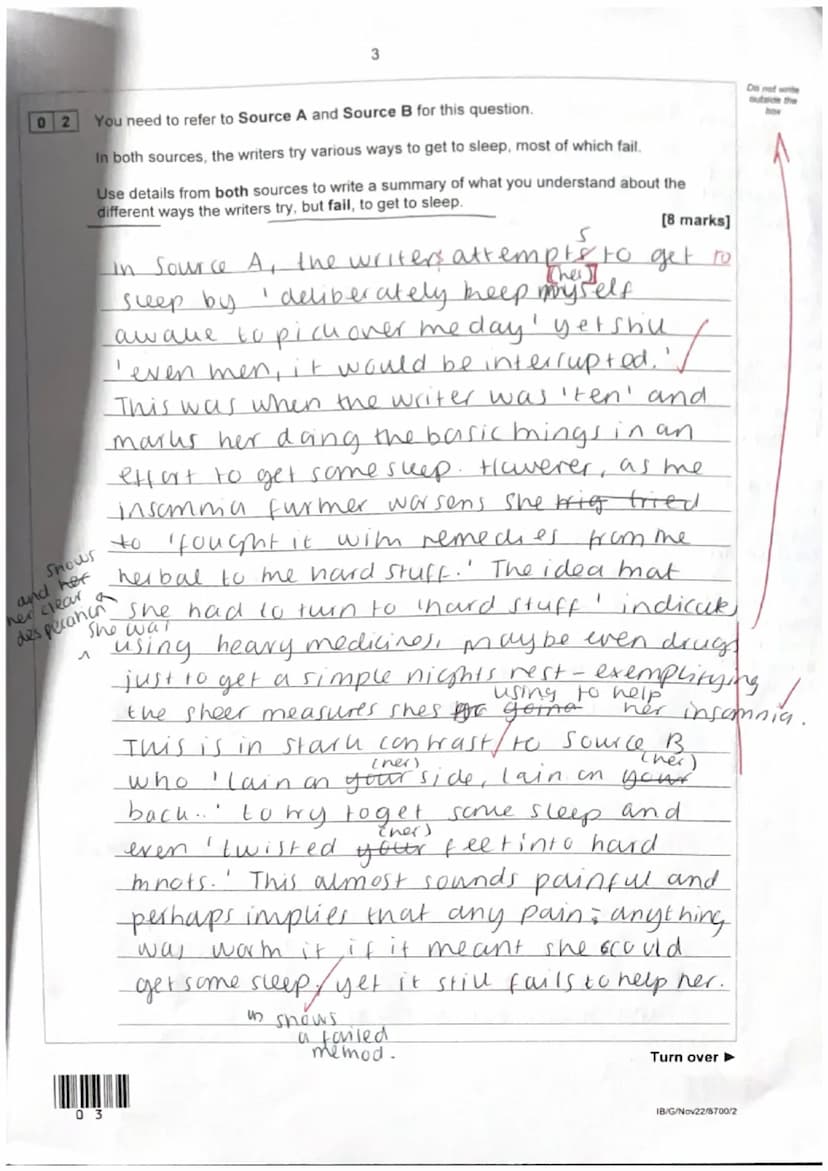 3
Do not write
outside the
box
0 2 You need to refer to Source A and Source B for this question.
In both sources, the writers try various ways to get to sleep, most of which fail.
Use details from both sources to write a summary of what you understand about the
different ways the writers try, but fail, to get to sleep.
[8 marks]
s
In Source A, the writers attempts to get to
[(her)]
sleep by 'deliberately keep myself
awake to pick over the day' yet still
'even then, it would be interrupted.'
This was when the writer was 'ten' and
marks her doing the basic things in an
effort to get some sleep. However, as the
insomnia further worsens she tried
to 'fought it with remedies from the
shows
and her
her clear
desperation
herbal to the hard stuff.' The idea that
she had to turn to 'hard stuff' indicates
she was
using heavy medicines, maybe even drugs
just to get a simple nights rest - exemplifying
using to help
the sheer measures shes going her insomnia.
This is in stark contrast to Source B
(her) (her)
who 'lain on your side, lain on your
back..' to try to get some sleep and
(her)
even 'twisted your feet into hard
knots.' This almost sounds painful and
perhaps implies that any pain; anything
was worth it if it meant she could
get some sleep, yet it still fails to help her.
shows
a failed
method.
Turn over ►
0 3
IB/G/Nov22/8700/2